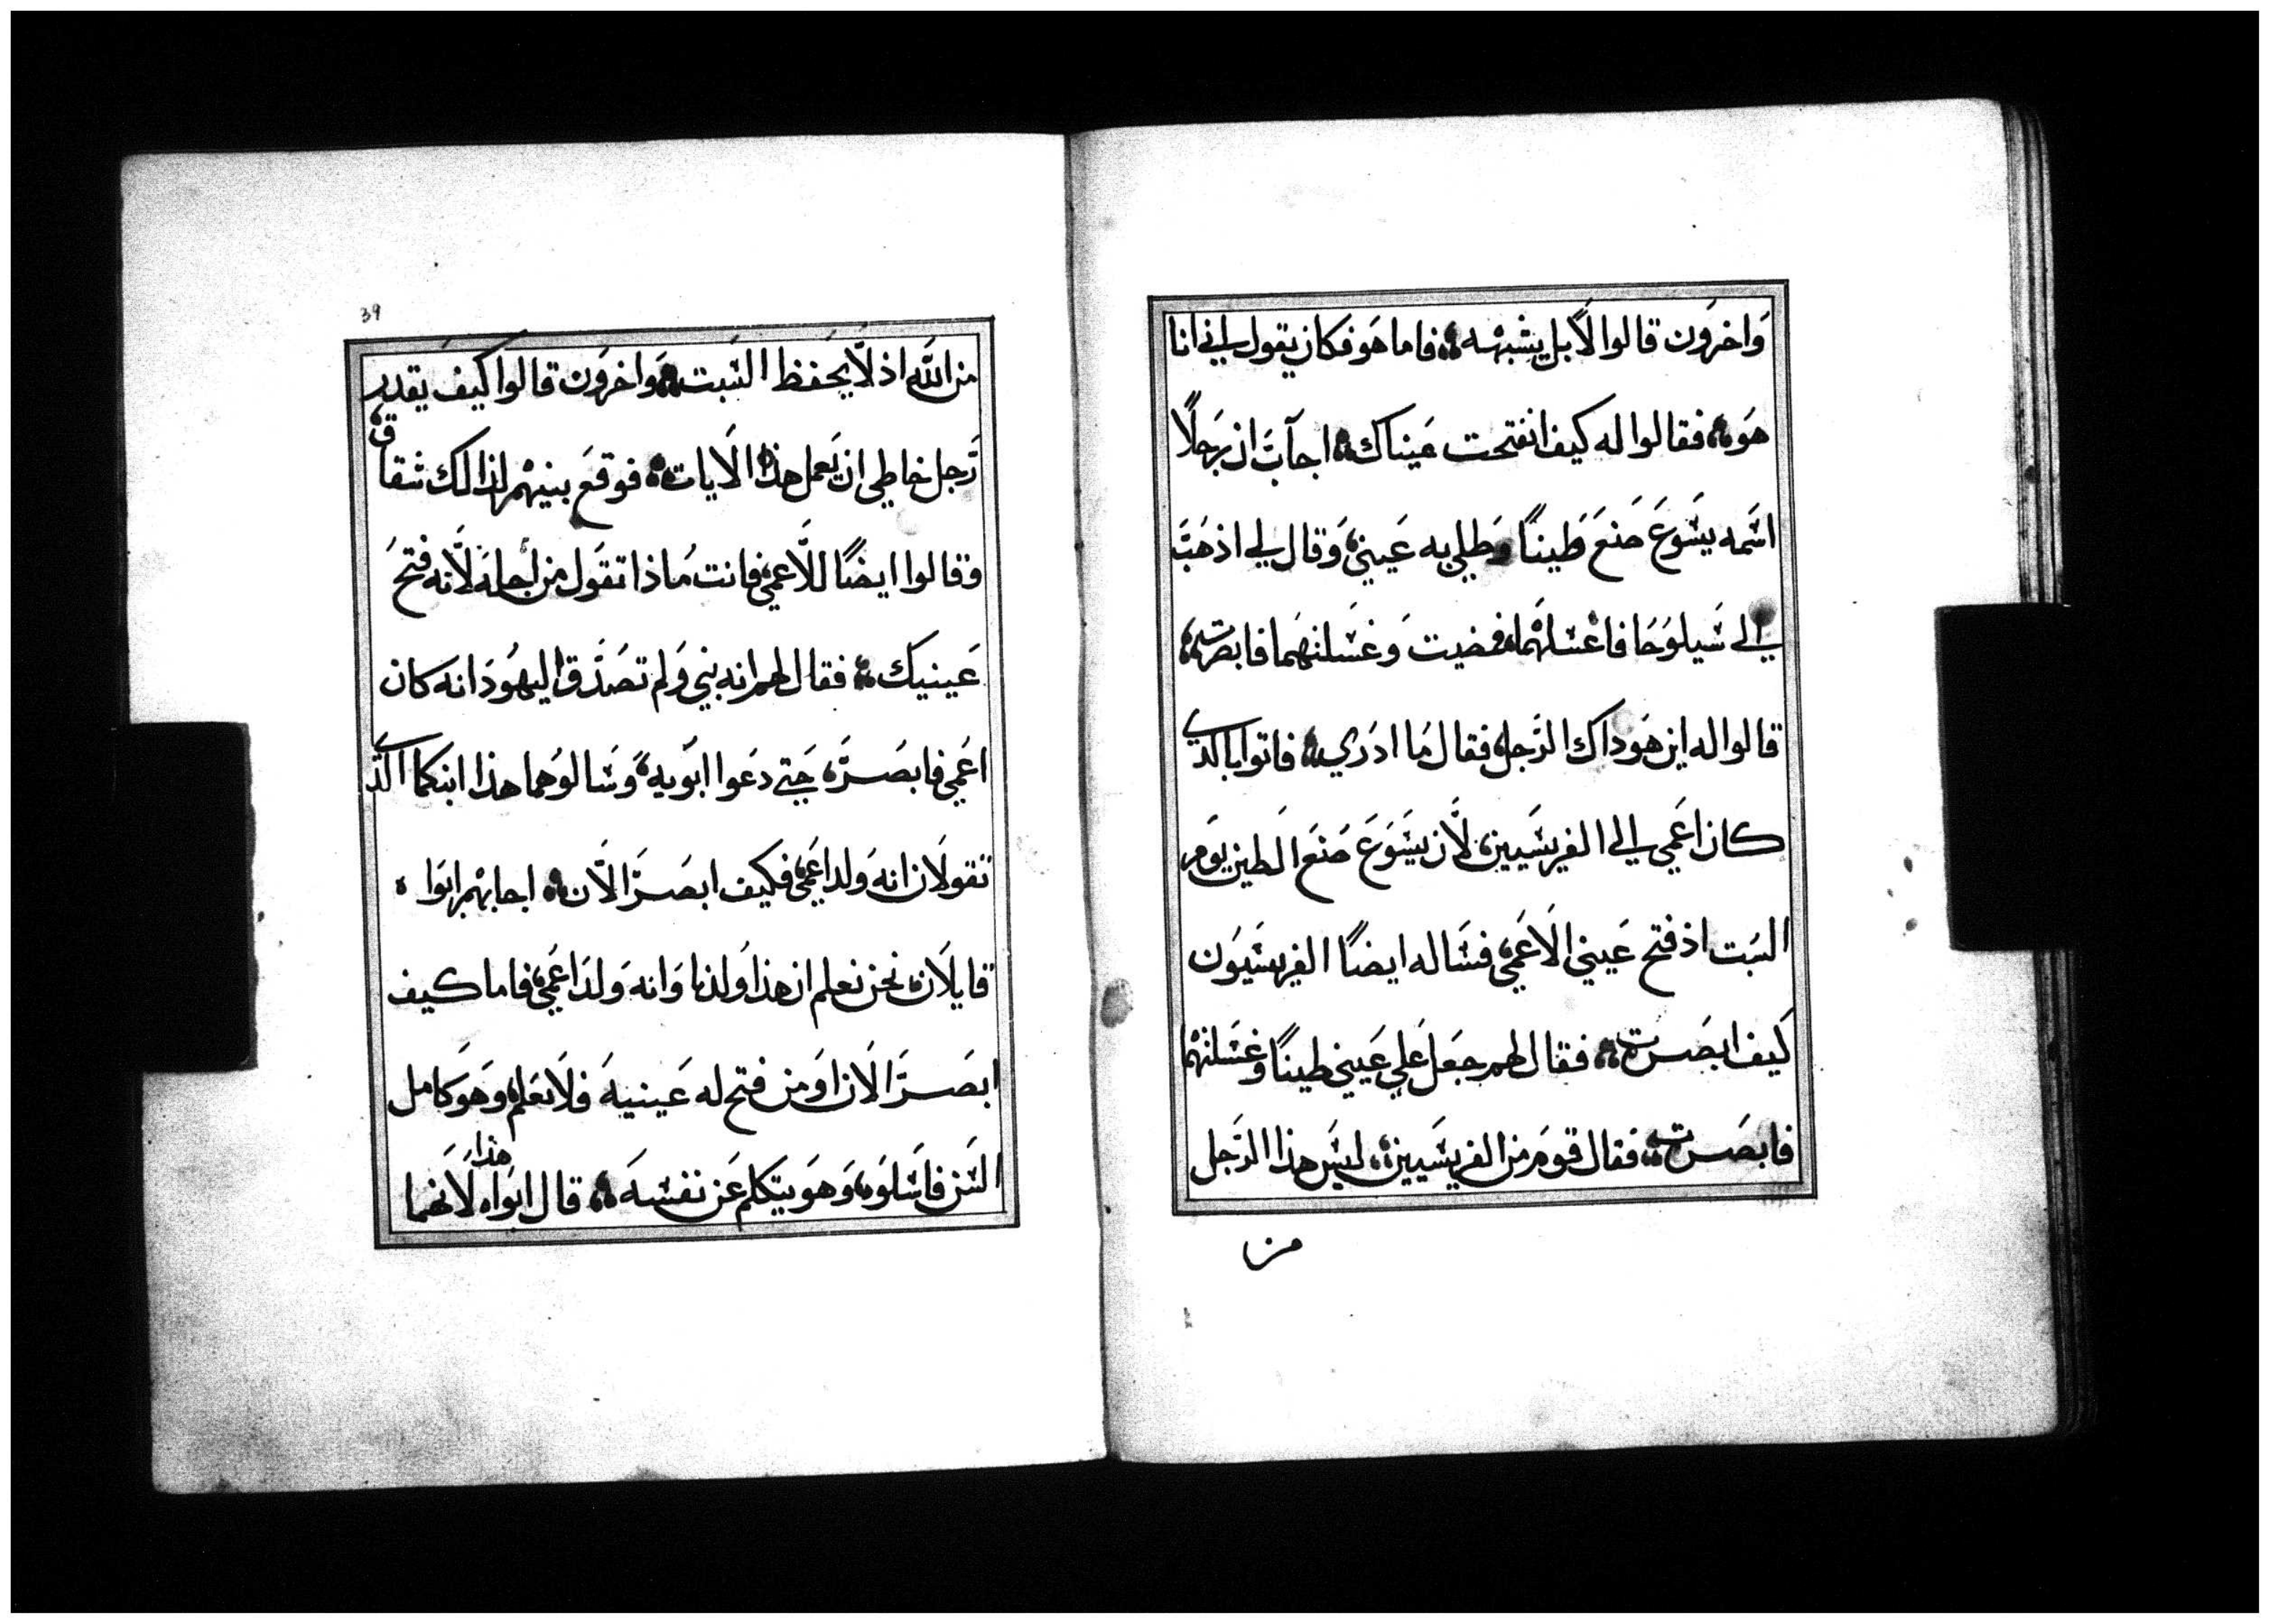 وَاخرَون قالوا لَا بل يشبهه فاما هَو فكان يقول اني انا
هَو فقالوا له كيف انفتحت عَيناك اجابَ ان رَجلًا
اسمه يسَوعَ صَنعَ طَينًا وَطلي به عَيني وَقال لي اذهَبَ
الي سَيلوَحَا فاغسلهما فمضيت وَغسَلتهَما فابصرت
قالوا له اين هَو داك الرَجل فقال مَا ادرَي فاتوا بالذي
كان اعَمي الي الفريسَيين لَان يسَوَعَ صَنعَ الَطين يوَم
السَبت اذ فتح عَيني الَاعَمي فسَاله ايضًا الفريسَيوَن
كَيف ابصَرت فقال لهم جعَل عَلي عَيني طينًا وغسَلتهما
فابصَرت فقال قومَ من الفريسَيين ليسَ هذا الرَجل
من
39
من الله اذ لَا يحَفظ السَبت وَاخرَون قالوا كيف يَقدر
رَجل خاطي ان يَعمل هذه الَايات فوقعَ بينهم لذالك شقاق
وَقالوا ايضًا للَاعمي فانت مَاذا تقَول من اجله لَانه فتحَ
عَينيك فقال لهم انه نبي وَلم تصَدَق اليهوَد انه كان
اعَمي فابصَر حَتي دعَوا ابوَيه وَسَالوَهما هذا ابنكما الذي
تقولَان انه وَلد اعَمي فكيف ابصَرَ الَان اجابهم ابوَاه
قايلَان نحن نعلم ان هذا وَلدنا وَانه وَلدَ اعَمي فاما كيف
ابصَرَ الَان اوَ من فتح له عَينيهَ فلَا نعَلم وَهَو كامل
السَن فاسَلوَه وَهَو يتكلم عَن نفسَهَ قال ابوَاه هَذا لَانهما